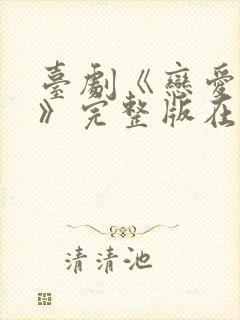 臺劇《戀愛
》完整版在
清清池